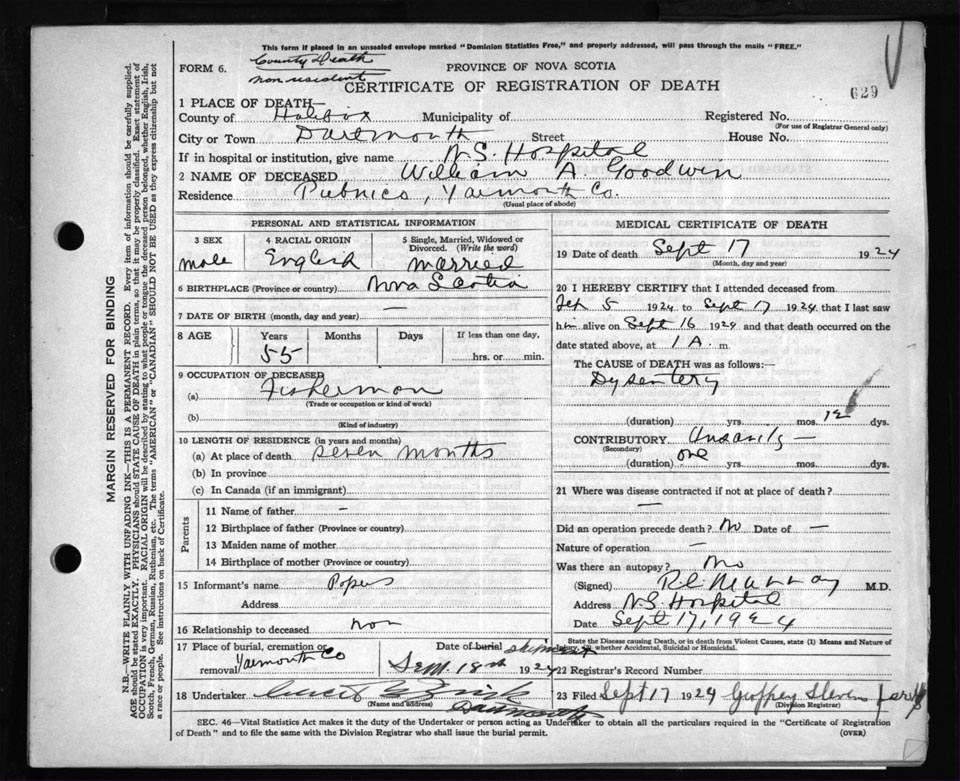 This form if placed in an unsealed envelope marked "Dominion Statistics Free," and properly addressed, will pass through the mails "FREE."
County Death
non resident
FORM 6.
PROVINCE OF NOVA SCOTIA
CERTIFICATE OF REGISTRATION OF DEATH
629
1 PLACE OF DEATH—
County of Halifax Municipality of Registered No.
(For use of Registrar General only)
City or Town Dartmouth Street House No.
If in hospital or institution, give name N.S. Hospital
2 NAME OF DECEASED William A. Goodwin
Residence Pubnico, Yarmouth Co.
(Usual place of abode)
PERSONAL AND STATISTICAL INFORMATION
3 SEX
male
4 RACIAL ORIGIN
English
5 Single, Married, Widowed or
Divorced. (Write the word)
married
6 BIRTHPLACE (Province or country) Nova Scotia
7 DATE OF BIRTH (month, day and year) —
8 AGE Years Months Days If less than one day,
55 hrs. or min.
9 OCCUPATION OF DECEASED
(a) Fisherman
(Trade or occupation or kind of work)
(b)
(Kind of industry)
10 LENGTH OF RESIDENCE (in years and months)
(a) At place of death seven months
(b) In province
(c) In Canada (if an immigrant)
Parents
11 Name of father –
12 Birthplace of father (Province or country)
13 Maiden name of mother
14 Birthplace of mother (Province or country)
15 Informant's name Papers
Address
16 Relationship to deceased non
17 Place of burial, cremation or
removal Yarmouth Co
Date of burial shipment
Sept. 18th 1924
18 Undertaker
(Name and address)
Dartmouth
MEDICAL CERTIFICATE OF DEATH
19 Date of death Sept 17 1924
(Month, day and year)
20 I HEREBY CERTIFY that I attended deceased from
Feb 5 1924 to Sept 17 1924 that I last saw
him alive on Sept 16 1924 and that death occurred on the
date stated above, at 1 A. m.
The CAUSE of DEATH was as follows:—
Dysentery
(duration) yrs. mos. 12 dys.
CONTRIBUTORY Insanity —
(Secondary)
(duration) one yrs. mos. dys.
21 Where was disease contracted if not at place of death?
—
Did an operation precede death? No Date of —
Nature of operation —
Was there an autopsy? No
(Signed) R.C. Murray M.D.
Address N.S. Hospital
Date Sept 17, 1924
State the Disease causing Death, or in death from Violent Causes, state (1) Means and Nature of
Injury, or whether Accidental, Suicidal or Homicidal.
22 Registrar's Record Number
23 Filed Sept 17 1924 Geoffrey Stevens
(Division Registrar)
SEC. 46—Vital Statistics Act makes it the duty of the Undertaker or person acting as Undertaker to obtain all the particulars required in the "Certificate of Registration
of Death" and to file the same with the Division Registrar who shall issue the burial permit. (OVER)
MARGIN RESERVED FOR BINDING
N.B.—WRITE PLAINLY WITH UNFADING INK—THIS IS A PERMANENT RECORD. Every item of information should be carefully supplied.
AGE should be stated EXACTLY. PHYSICIANS should STATE CAUSE OF DEATH in plain terms, so that it may be properly classified. Exact statement of
OCCUPATION is very important. RACIAL ORIGIN will be described by stating to what people or tongue the deceased person belonged, whether English, Irish,
Scotch, French, German, Russian, Ruthenian, etc. The terms "AMERICAN" or "CANADIAN" SHOULD NOT BE USED as they express citizenship but not
a race or people. See instructions on back of Certificate.